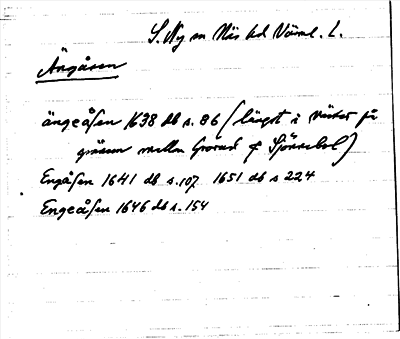 S. Ny sn Näs hd Värml. L.
Ängåsen
ängeåsen 1638 db s. 86 (längst i väster på
gränsen mellan Grorud & Sjönsebol)
Engåsen 1641 db s. 107 1651 db s 224
Engeåsen 1646 db s. 154